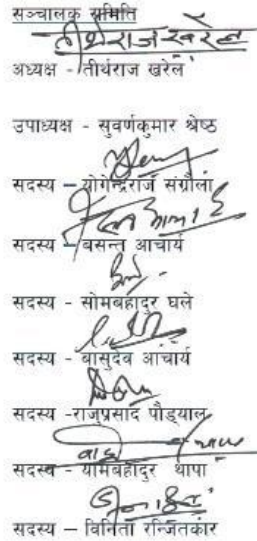 सञ्चालक समिति
तीर्थराज खरेल
अध्यक्ष - तीर्थराज खरेल
उपाध्यक्ष - सुवर्णकुमार श्रेष्ठ
सदस्य – योगेन्द्रराज संग्रौला
सदस्य – बसन्त आचार्य
सदस्य - सोमबहादुर घले
सदस्य - बासुदेव आचार्य
सदस्य -राजुप्रसाद पौड्याल
सदस्य - यामबहादुर थापा
सदस्य – विनिता रन्जितकार